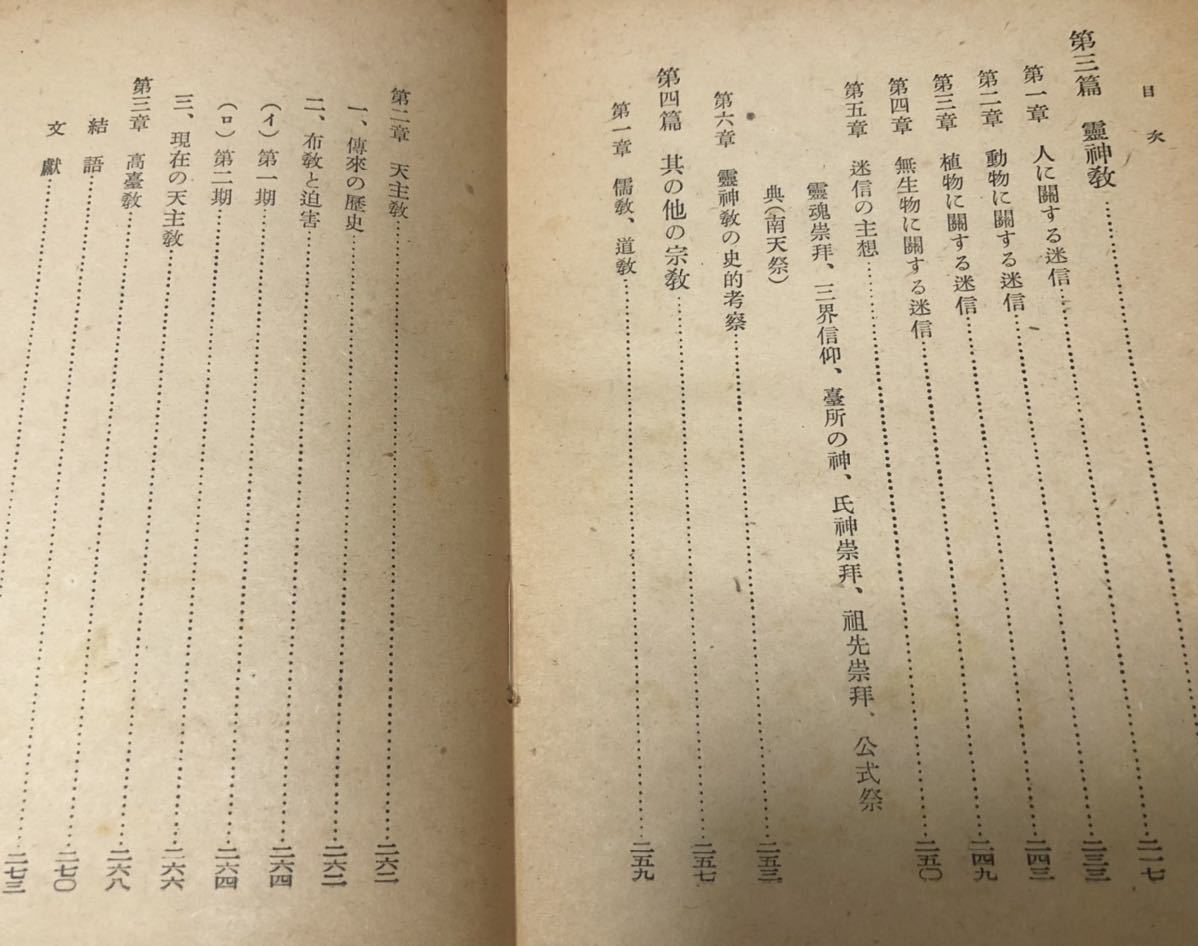 目次
第三篇 靈神教
第一章 人に關する迷信 二一七
第二章 動物に關する迷信 二三三
第三章 植物に關する迷信 二四三
第四章 無生物に關する迷信 二四九
第五章 迷信の主想 二五〇
靈魂崇拜、三界信仰、臺所の神、氏神崇拜、祖先崇拜、公式祭
典(南天祭)
第六章 靈神教の史的考察 二五三
第四篇 其の他の宗教 二五七
第一章 儒教、道教 二五九
第二章 天主教 二六二
一、傳來の歷史 二六二
二、布教と迫害 二六四
(イ) 第一期 二六四
(ロ) 第二期 二六六
三、現在の天主教 二六八
第三章 高臺教 二七〇
結語 二七三
文獻